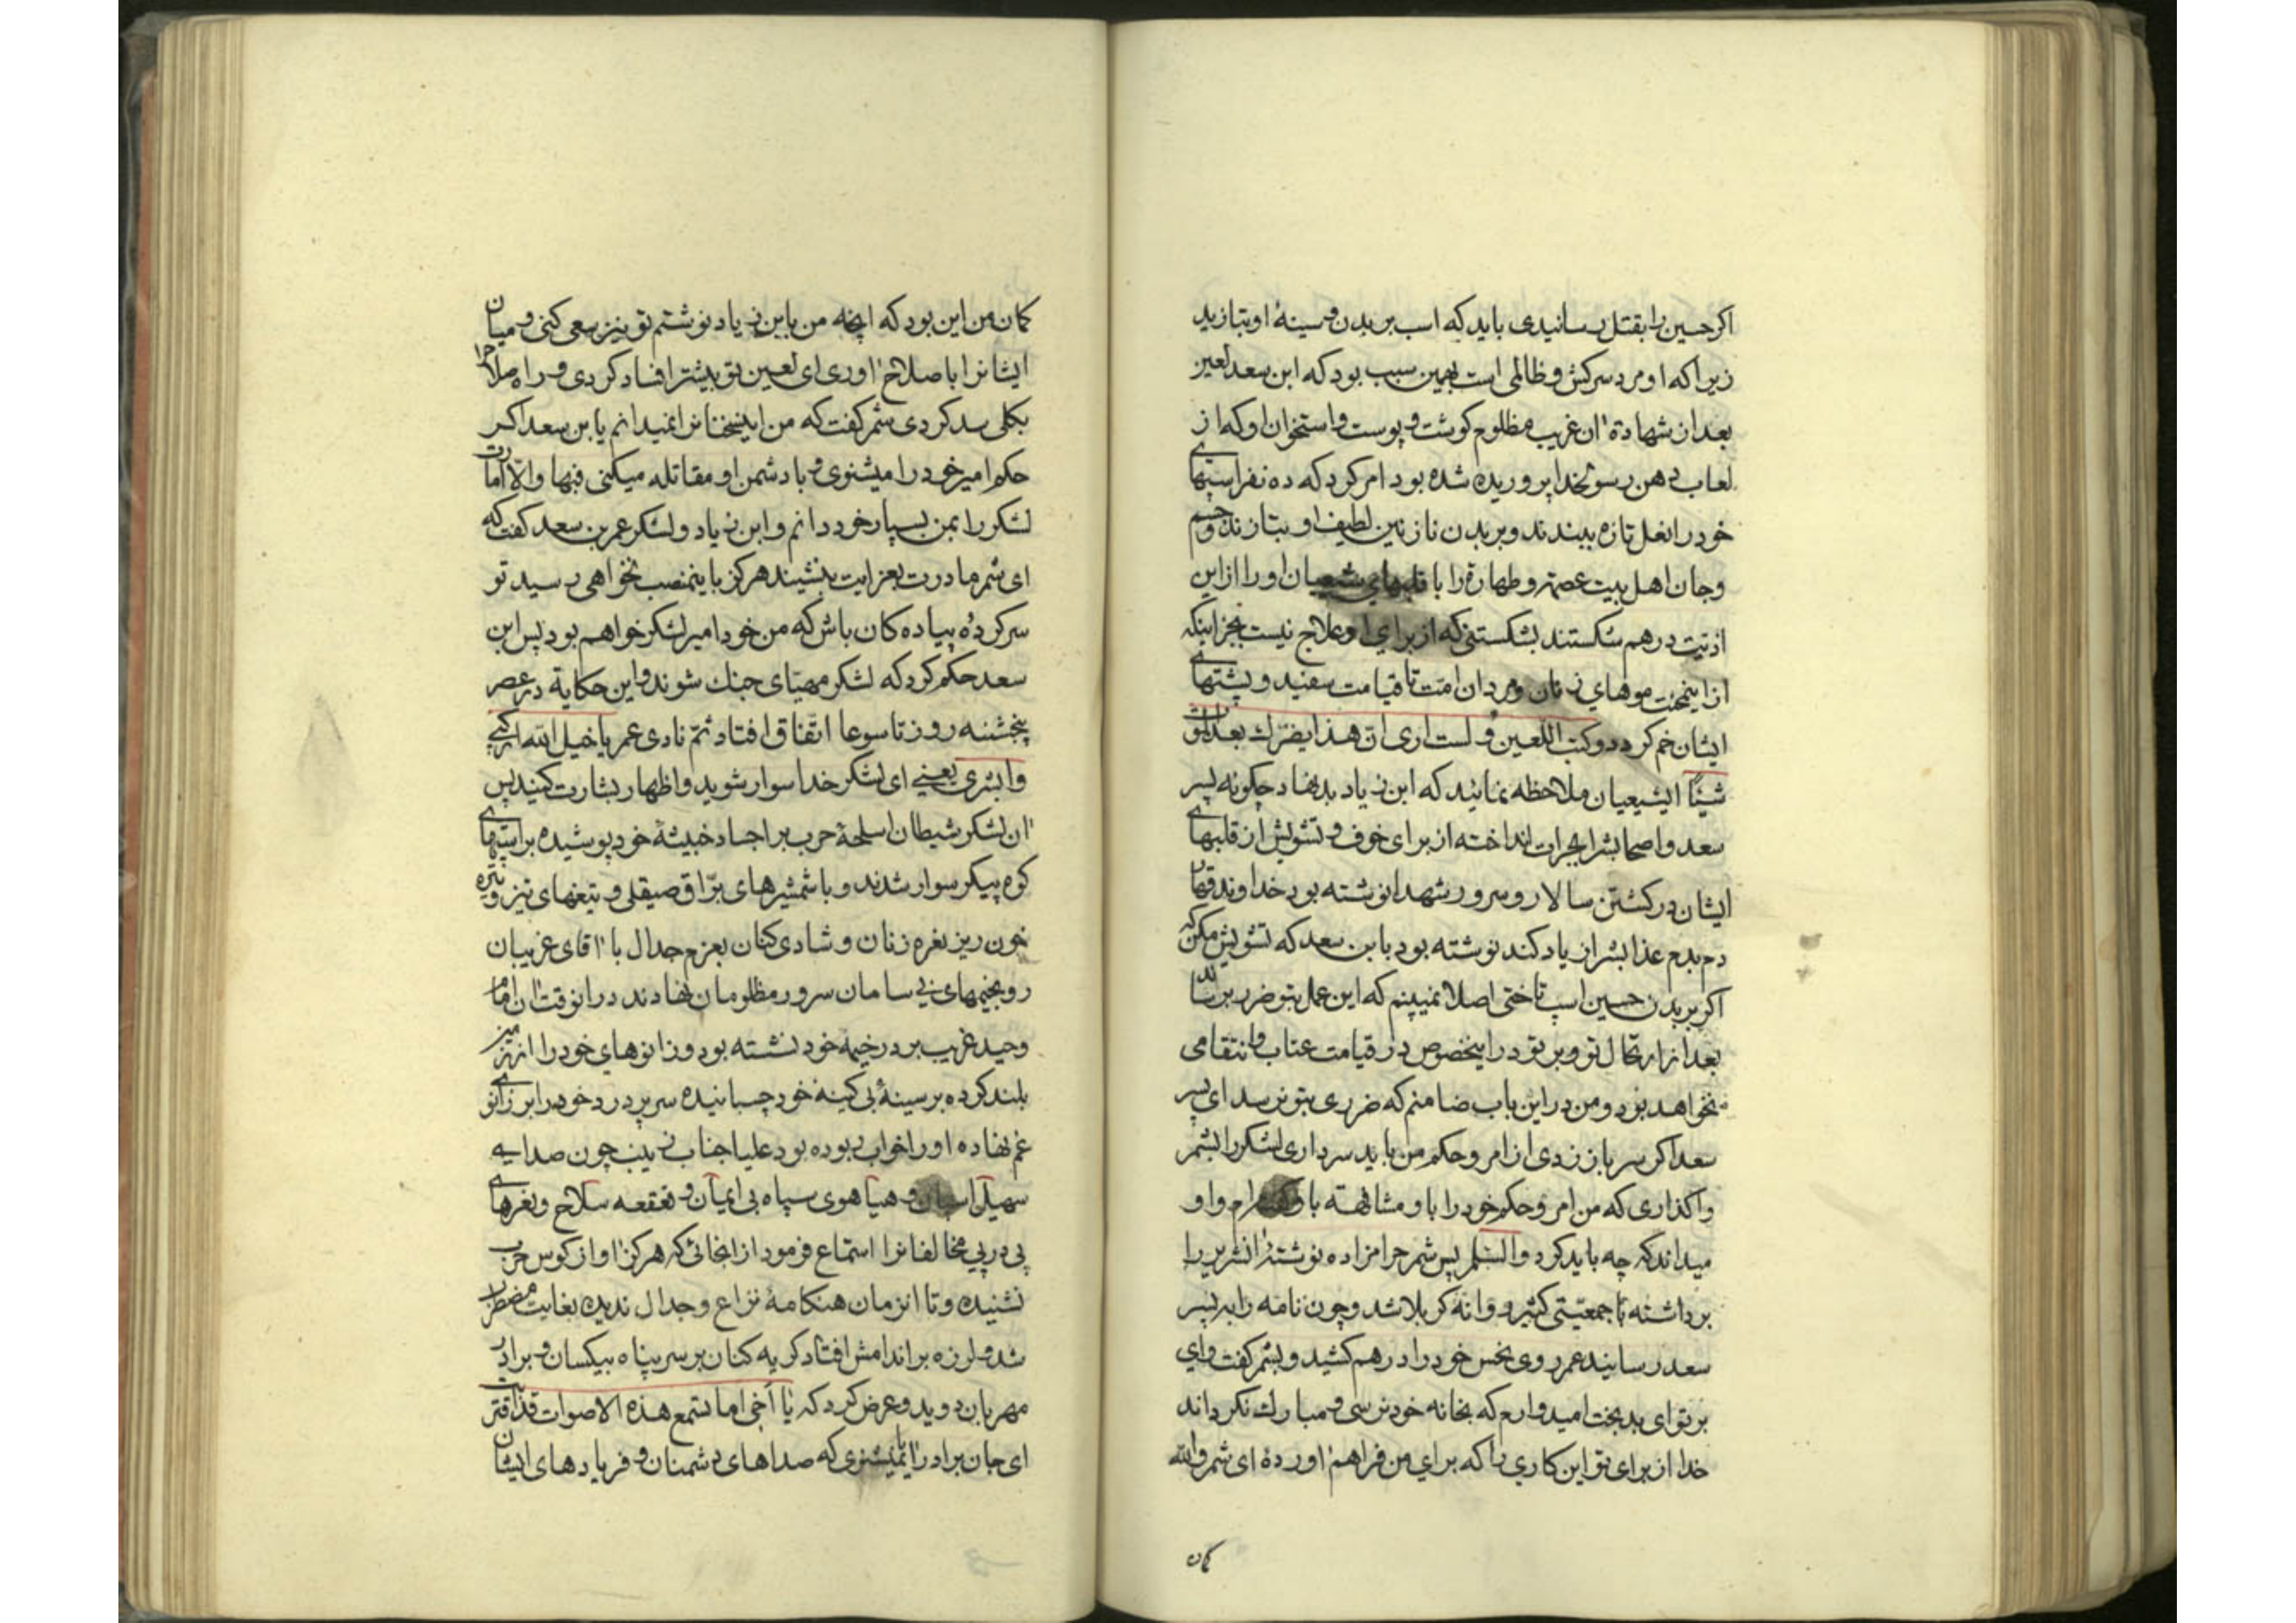 اکر حسین را بقتل رسانیدی باید که اسب بر بدن و سینهٔ او بتازید
زیرا که او مرد سرکش و ظالمی است بهمین سبب بود که ابن سعد لعین
بعد از شهادة ان غریب مظلوم کوشت و پوست و استخوان او که از
لعاب دهن رسولخدا پروریده شده بود امر کرد که ده نفر اسبهای
خود را نعل تازه ببندند و بر بدن نازنین لطیف او بتازند و جسم
و جان اهل بیت عصمة و طهارة را با قلبهای شیعیان او را از این
اذیت در هم شکستند بشکستنی که از برای او علاج نیست بجز اینکه
از اینمحنت موهای زنان و مردان امت تا قیامت سفید و پشتهای
ایشان خم کردد و کتب اللعین و لست اری ان هذا یضرك بعد الموت
شیئا ایشیعیان ملاحظه نمائید که ابن زیاد بدنهاد چکونه پسر
سعد و اصحابشرا بجرات انداخته از برای خوف و تشویش از قلبهای
ایشان در کشتن سالار و سرور شهدا نوشته بود خداوند قهار
دم بدم عذابشرا زیاد کند نوشته بود بابن سعد که تشویش مکن که
اکر بر بدن حسین اسب تاختی اصلا نمیبینم که این عمل بتو ضرر برساند
بعد از ارتحال تو و بر تو در اینخصوص در قیامت عتاب و انتقامی
نخواهد بود و من در این باب ضامنم که ضرری بتو نرسد ای پسر
سعد اکر سر باز زدی از امر و حکم من باید سرداری لشکر را بشمر
واکذاری که من امر و حکم خود را باو مشافهة باو کرده‌ام و او
میداند که چه باید کرد والسلم پس شمر حرامزاده نوشتهٔ انشریر را
برداشته با جمعیتی کثیر روانه کربلا شد و چون نامه را به پسر
سعد رسانید عمر روی نحس خود را در هم کشید و بشمر کفت وای
بر تو ای بدبخت امیدوارم که بخانه خود نرسی و مبارك نکرداند
خدا از برای تو این کاری را که برای من فراهم اوردهٔ ای شمر والله
کمان
کمان من این بود که انچه من بابن زیاد نوشتم تو نیز سعی کنی و میان
ایشانرا باصلاح اوری ای لعین تو بیشتر افساد کردی و راه مدارا
بکلی سد کردی شمر کفت که من اینسخنانرا نمیدانم یابن سعد اکر
حکم امیر خود را میشنوی و با دشمن او مقاتله میکنی فبها و الّا امارت
لشکر را بمن بسپار خود دانم و ابن زیاد و لشکر عمر بن سعد کفت که
ای شمر مادرت بعزایت بنشیند هرکز باینمنصب نخواهی رسید تو
سرکردهٔ پیاده کان باش که من خود امیر لشکر خواهم بود پس ابن
سعد حکم کرد که لشکر مهیّای جنك شوند و این حکایة در عصر
پنجشنبه روز تاسوعا اتفاق افتاد ثم نادی عمر یا خیل الله ارکبی
وابشری یعنی ای لشکر خدا سوار شوید و اظهار بشارت کنید پس
ان لشکر شیطان اسلحهٔ حرب بر اجساد خبیثهٔ خود پوشیده بر اسبهای
کوه پیکر سوار شدند و با شمشیرهای برّاق صیقلی و تیغهای تیز و نیزه
خون ریز نعره زنان و شادی کنان بعزم جدال با اقای غریبان
رو بخیمهای بی سامان سرور مظلومان نهادند در انوقت ان امام
وحید غریب بر در خیمه خود نشسته بود و زانوهای خود را از زمین
بلند کرده بر سینهٔ بی کینه خود چسبانیده سر پر درد خود را بر زانوی
غم نهاده او را خواب ربوده بود علیا جناب زینب چون صدای
سهیل اسبان و هیاهوی سپاه بی ایمان و قعقعه سلاح و نعرهای
پی در پی مخالفانرا استماع فرمود از انجائیکه هرکز اواز کوس حرب
نشنیده و تا انزمان هنکامهٔ نزاع و جدال ندیده بغایت مضطرب
شد و لرزه بر اندامش افتاد کریه کنان بر سر پناه بیکسان و برادر
مهربان دوید و عرض کرد که یا اخی اما تسمع هذه الاصوات قد اقتربت
ای جان برادر ایا نمیشنوی که صداهای دشمنان و فریادهای ایشان